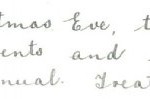 tmas Eve, t
ents and
nual. Treat